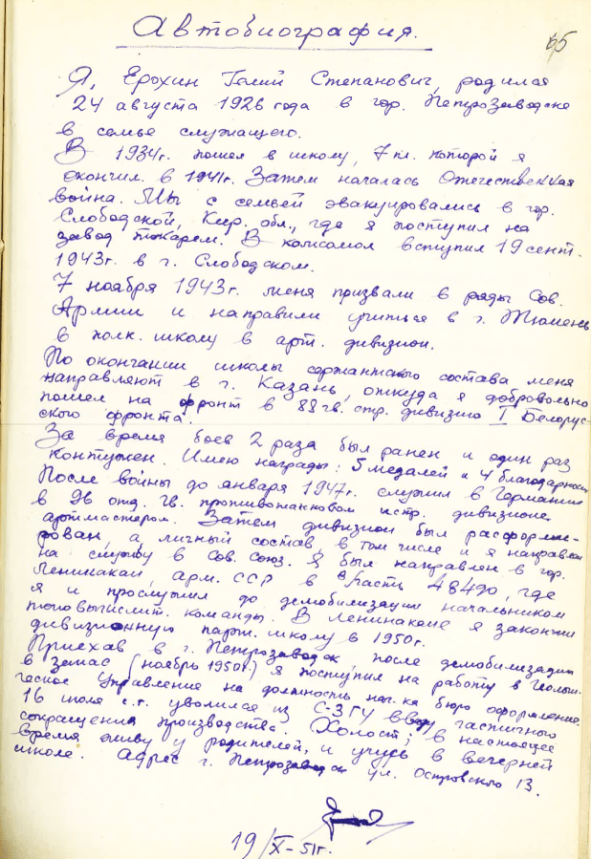 Автобиография.
65
Я, Ерохин Гелий Степанович, родился
24 августа 1926 года в гор. Петрозаводске
в семье служащего.
В 1934г. пошел в школу, 7 кл. которой я
окончил в 1941г. Затем началась Отечественная
война. Мы с семьей эвакуировались в гор.
Слободской, Кир. обл., где я поступил на
завод токарем. В комсомол вступил 19 сент.
1943г. в г. Слободском.
7 ноября 1943г. меня призвали в ряды Сов.
Армии и направили учиться в г. Тюмень
в полк. школу в арт. дивизион.
По окончании школы сержантского состава меня
направляют в г. Казань, откуда я добровольно
пошел на фронт в 88 гв. стр. дивизию I Белорус-
ского фронта.
За время боев 2 раза был ранен и один раз
контужен. Имею награды: 5 медалей и 4 благодарности
После войны до января 1947г. служил в Германии
в 96 отд. гв. противотанковом истр. дивизионе
артмастером. Затем дивизион был расформи-
рован, а личный состав в том числе и я направлен
на службу в Сов. Союз. Я был направлен в гор.
Ленинакан, арм. ССР в часть 48490, где
я и прослужил до демобилизации начальником
топовычислит. команды. В Ленинакане я закончил
дивизионную парт. школу в 1950г.
Приехав в г. Петрозаводск, после демобилизации
в запас (ноябрь 1950г.) я поступил на работу в
Управление на должность нач-ка бюро оформления.
16 июля с.г. уволился из С-З ГУ ввиду частичного
сокращения производства. Холост; в настоящее
время живу у родителей, и учусь в вечерней
школе. Адрес г. Петрозаводск ул. Островского 13.
19/X-51г.